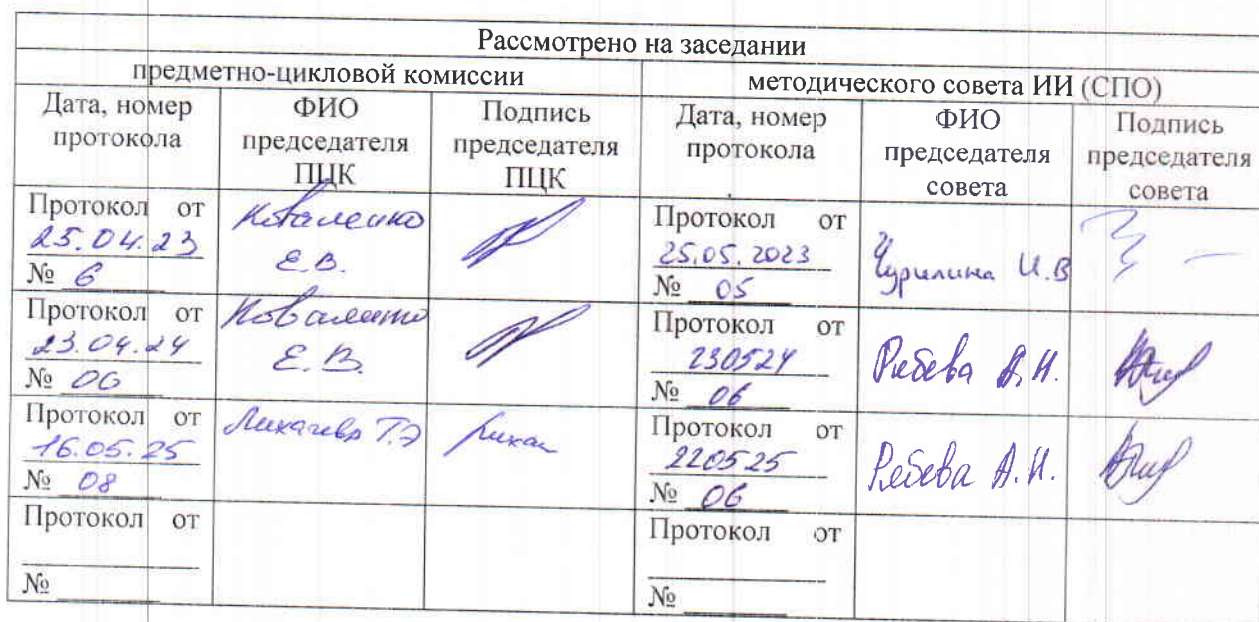 Рассмотрено на заседании
предметно-цикловой комиссии
методического совета ИИ (СПО)
Дата, номер
протокола
ФИО
председателя
ПЦК
Подпись
председателя
ПЦК
Дата, номер
протокола
ФИО
председателя
совета
Подпись
председателя
совета
Протокол от
25.04.23
№ 6
Коваленко
Е.В.
Протокол от
25.05.2023
№ 05
Чурилина И.В
Протокол от
23.04.24
№ 06
Коваленко
Е.В.
Протокол от
230524
№ 06
А.Н.
Протокол от
16.05.25
№ 08
Лихачева Т.Э
Протокол от
220525
№ 06
А.Н.
Протокол от
№
Протокол от
№